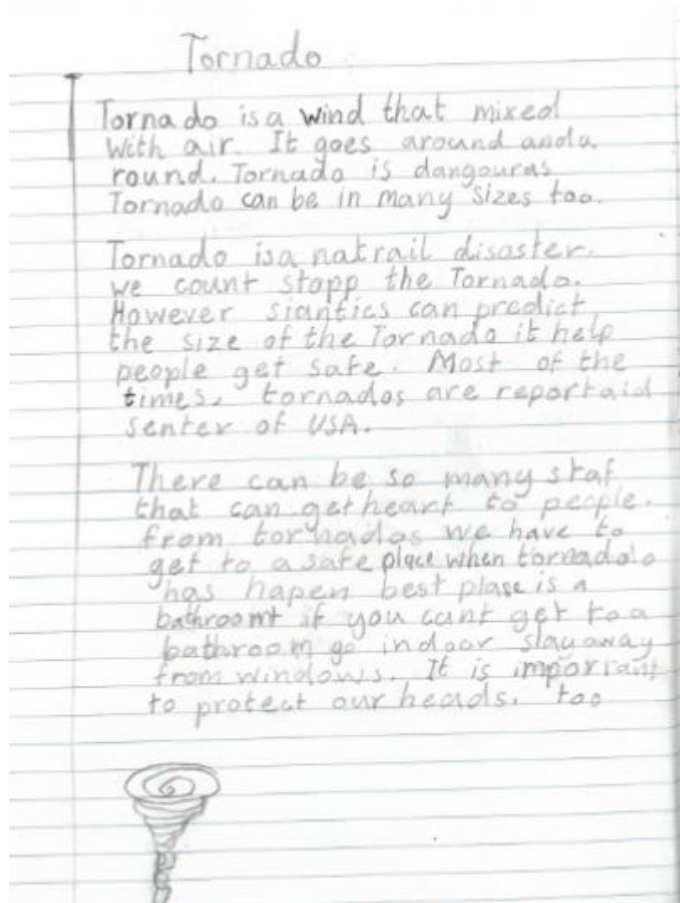 Tornado
Tornado is a wind that mixed
with air. It goes around anda
round. Tornado is dangouras
Tornado can be in many sizes too.
Tornado is a natrail disaster.
we count stopp the Tornado.
However siantics can predict
the size of the Tornado it help
people get safe. Most of the
times, tornados are reportaid
senter of USA.
There can be so many staf
that can get heart to people.
from tornados we have to
get to a safe place when tornado's
has hapen best plase is a
bathroomt if you cant get to a
bathroom go indoor stay away
from windows. It is important
to protect our heads. too